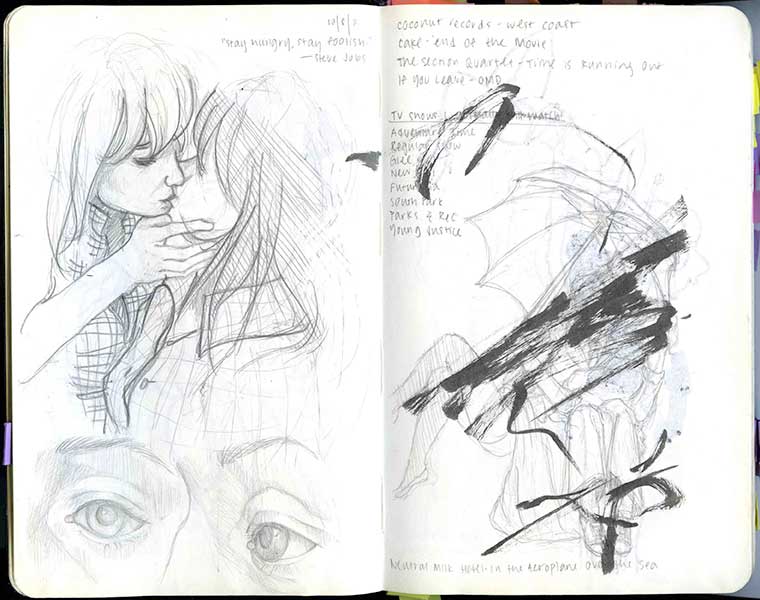 10/5/11
"stay hungry, stay foolish."
—Steve Jobs
coconut records - west coast
cake - end of the movie
The section Quartet - Time is Running out
If you Leave - OMD
TV shows I watch
Adventure Time
Regular show
Glee
New
Futurama
South Park
Parks & Rec
Young Justice
Neutral Milk Hotel - In the Aeroplane over the sea